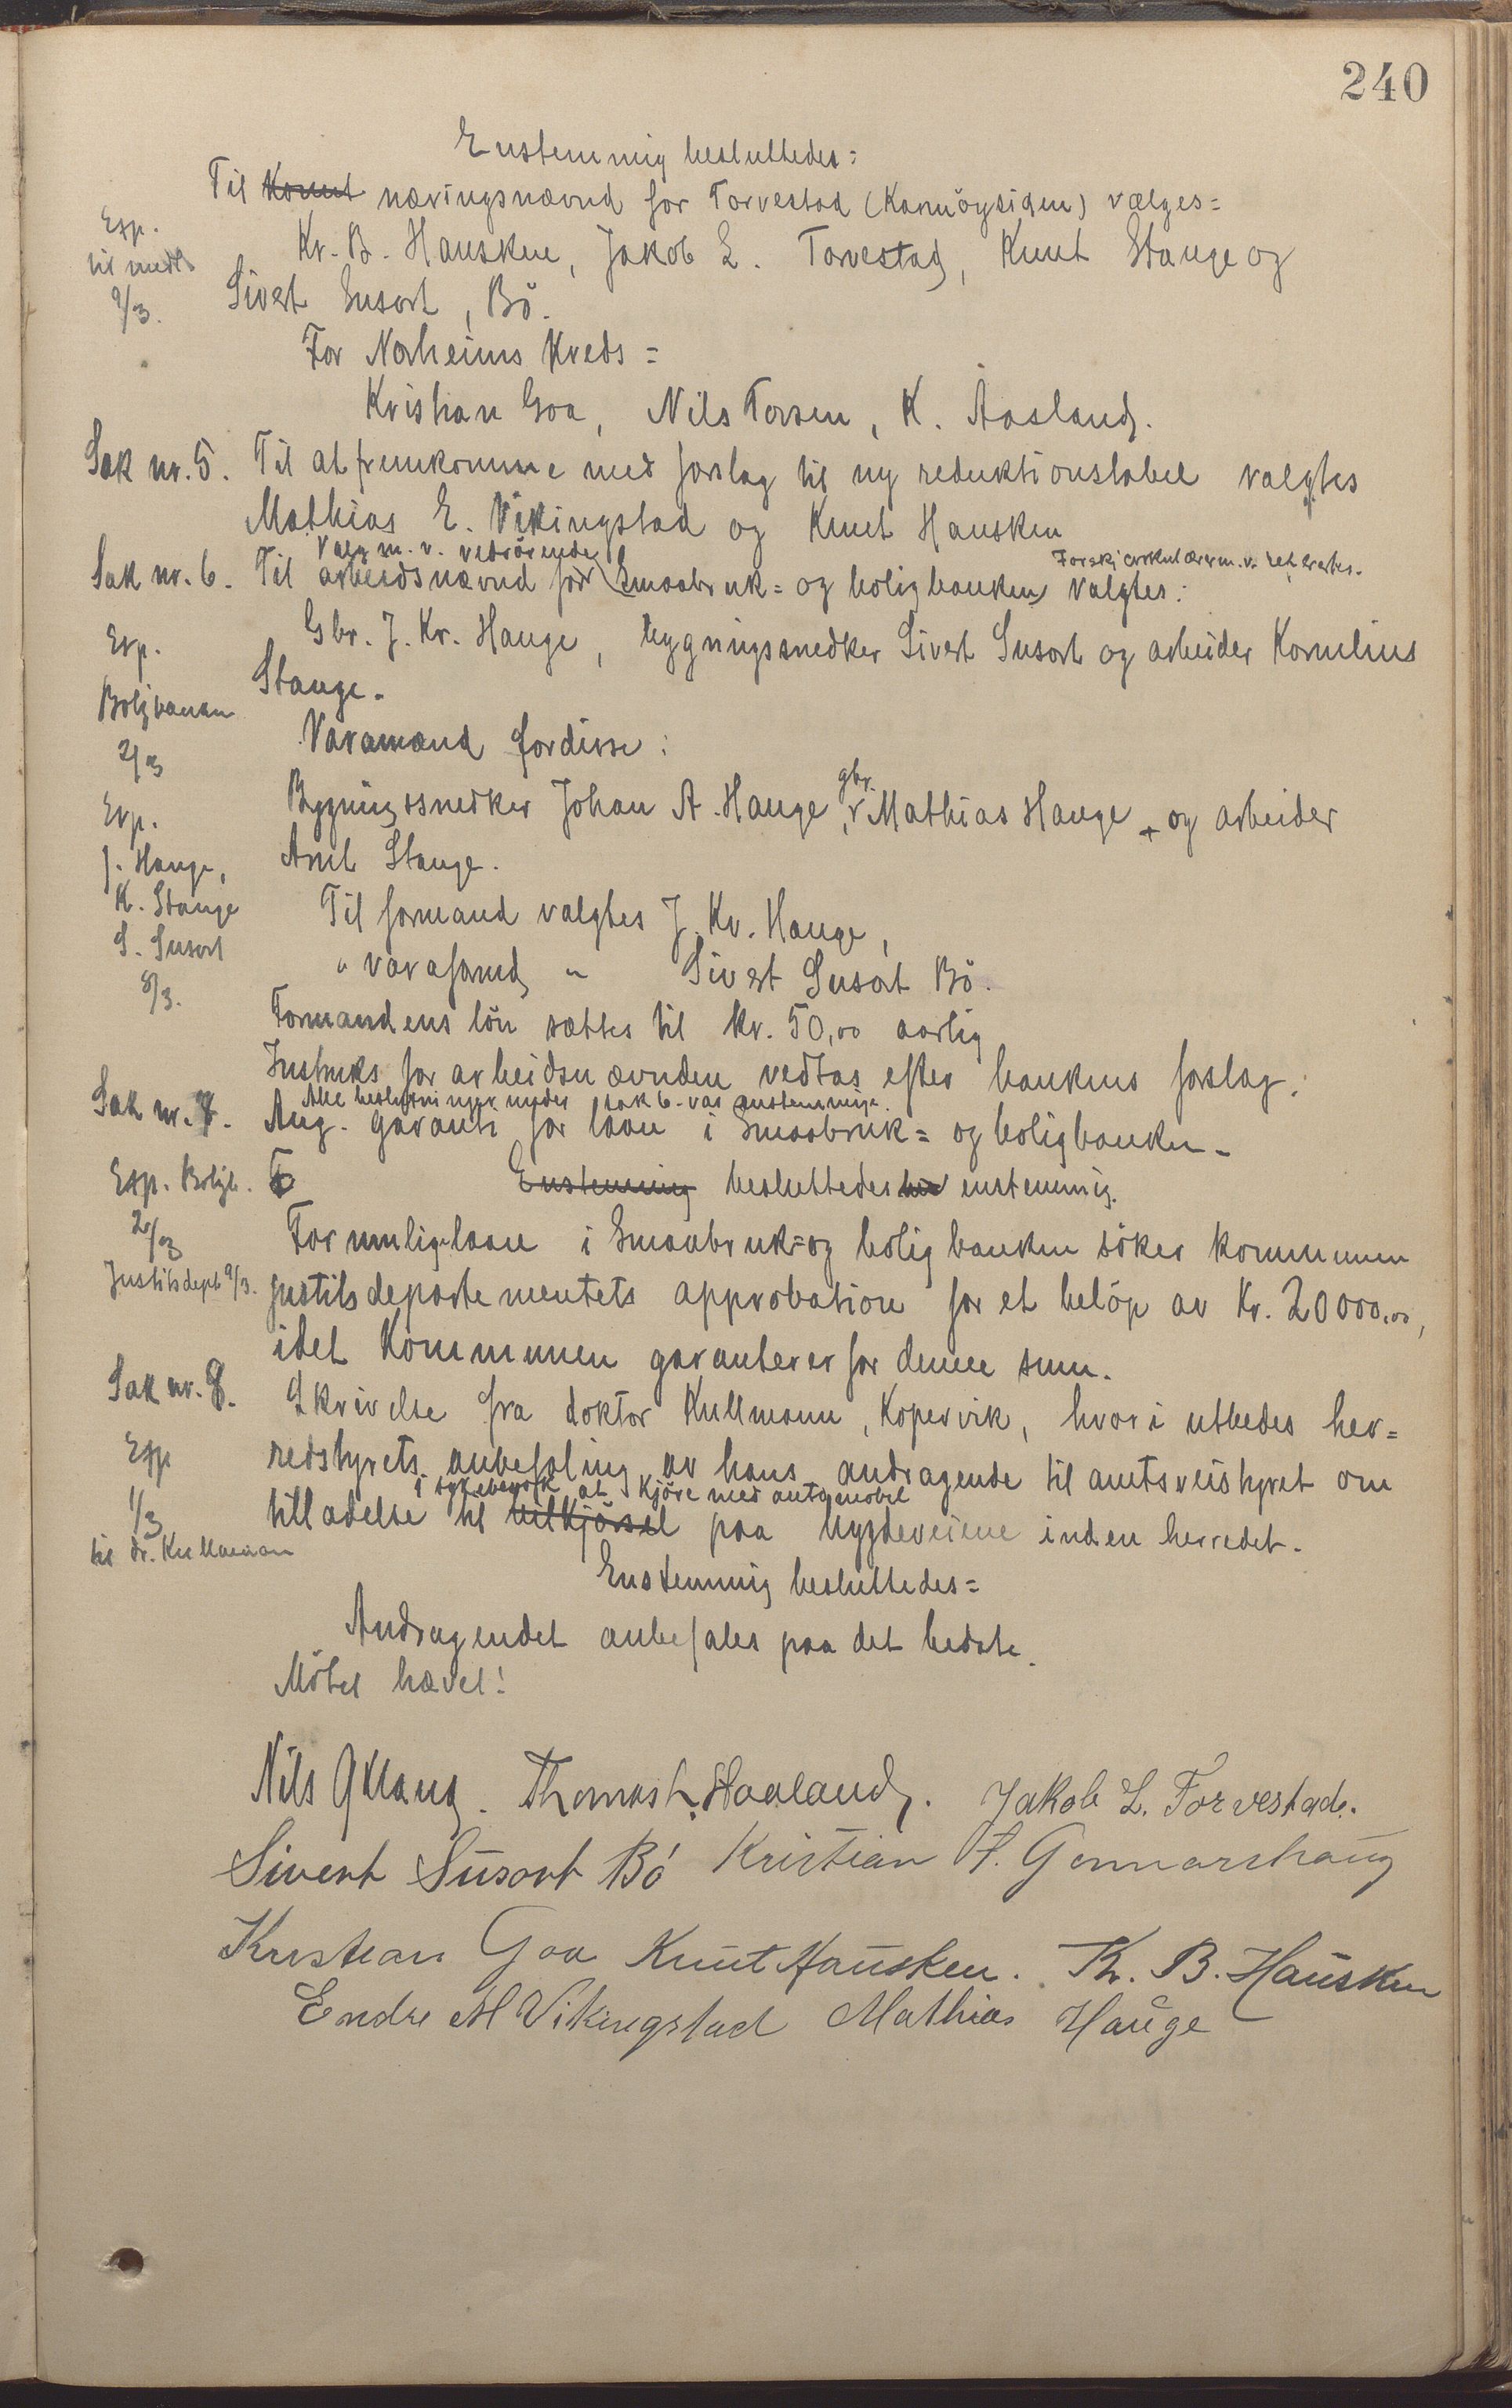 240
Enstemmig besluttedes:
Til Komt næringsnævnd for Torvestad (Karmöysiden) vælges=
Exp.
til medl.
9/3.
Kr. B. Hausken, Jakob L. Torvestad, Knut Stange og
Sivert Susort, Bö.
For Norheims Kreds=
Kristian Goa, Nils Torsen, K. Aasland.
Sak nr. 5. Til at fremkomme med forslag til ny reduktionstabel valgtes
Mathias E. Vikingstad og Knut Hausken
Valg m.v. vedrörende
Forskj. cirkulærer m.v. refereertes.
Sak nr. 6. Til arbeidsnævnd for Smaabruk= og boligbanken valgtes:
Exp.
Boligbanken
2/3
Gbr. J. Kr. Hauge, bygningssnedker Sivert Susort og arbeider Kornelius
Stange.
Varamænd for disse:
gbr.
Bygningssnedker Johan A. Hauge, Mathias Hauge + og arbeider
Exp.
J. Hauge,
K. Stange
S. Susort
8/3.
Amt Stange.
Til formand valgtes J. Kr. Hauge,
" varaformd " Sivert Susort Bö.
Formandens lön sættes til kr. 50,00 aarlig
Instruks for arbeidsnævnden vedtas efter bankens forslag.
Alle beslutninger under sak 6 var enstemmige.
Sak nr. 7. Ang. garanti for laan i Smaabruk= og boligbanken.
Exp. Boligb.
2/3
Justitsdept 9/3.
Enstemmig besluttedes enstemmig.
For mulige laan i Smaabruk= og boligbanken söker kommunen
justitsdepartementets approbation for et belöp av Kr. 20000.00,
idet Kommunen garanterer for denne sum.
Sak nr. 8. Skrivelse fra doktor Kullmann, Kopervik, hvori utbedes her=
Exp
1/3
til dr. Kullmann
redstyrets anbefaling av hans andragende til amtsveistyret om
i sykebesök at kjöre med automobil
tilladelse til bilkjörsel paa bygdeveiene inden herredet.
Enstemmig besluttedes=
Andragendet anbefales paa det bedste.
Mötet hævet!
Thomas L. Haaland. Jakob L. Torvestad.
Sivert Susort Bö Kristian F. Gunnarshaug
Kristian Goa Knut Hausken. Kr. B. Hausken
Endre M Vikingstad Mathias Hauge